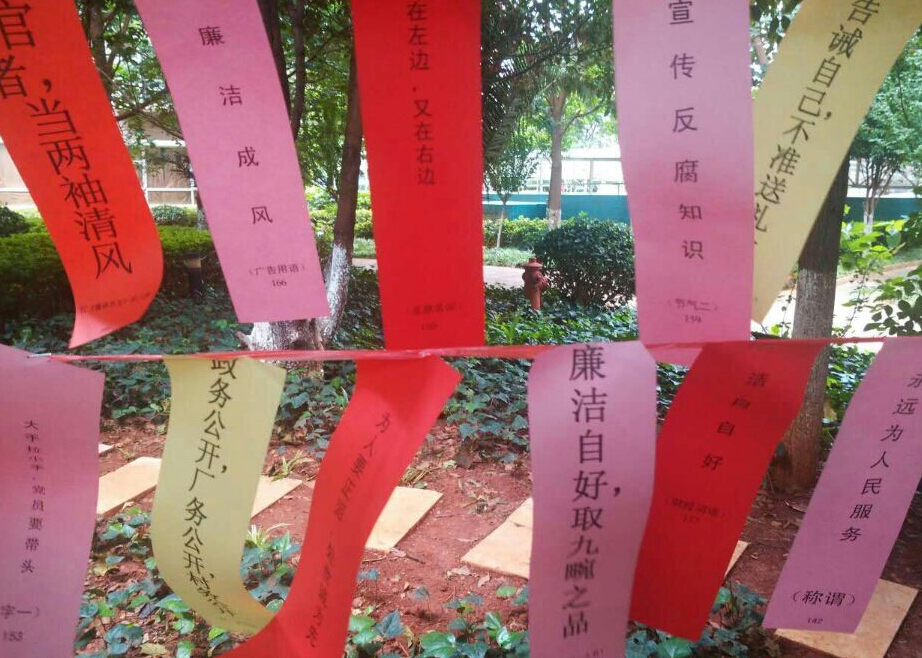 官
者，当两袖清风
廉洁成风
（广告用语）
166
在左边，又在右边
宣传反腐知识
159
告诫自己，不准送礼
党员要带头
字一）
153
政务公开，厂务公开，村务
为人要正
廉洁自好，取九畹之品
洁自好
永远为人民服务
（称谓）
142